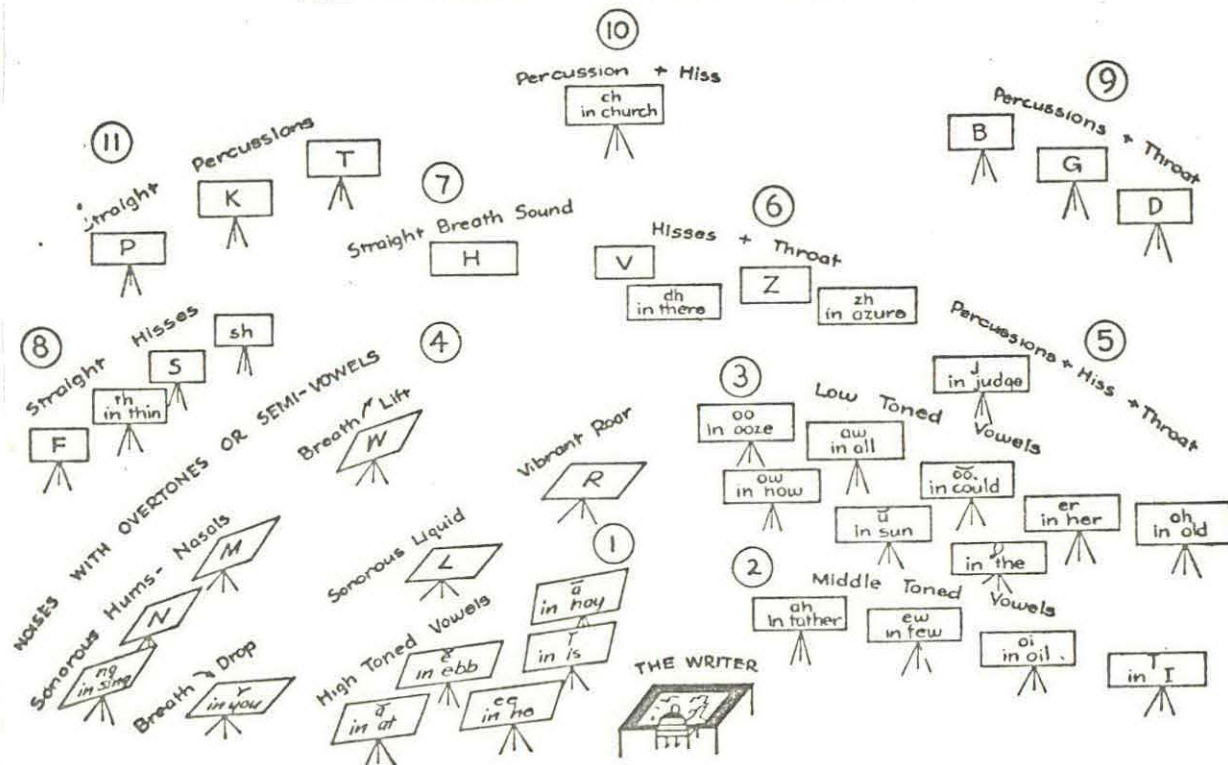 10
Percussion + Hiss
ch
in church
9
Percussions + Throat
B
G
D
11
Straight Percussions
P
K
T
7
Straight Breath Sound
H
6
Hisses + Throat
V
dh
in there
Z
zh
in azure
8
Straight Hisses
F
th
in thin
S
sh
4
NOISES WITH OVERTONES OR SEMI-VOWELS
Breath Lift
W
Vibrant Roar
R
Sonorous Liquid
L
Sonorous Hums - Nasals
M
N
ng
in sing
Breath Drop
Y
in you
5
Percussions + Hiss + Throat
J
in judge
3
Low Toned Vowels
oo
in ooze
aw
in all
ow
in how
o͝o
in could
ŭ
in sun
er
in her
oh
in old
in the
2
Middle Toned Vowels
ah
in father
ew
in few
oi
in oil
in I
1
High Toned Vowels
ā
in hay
in is
ĕ
in ebb
ee
in he
in at
THE WRITER